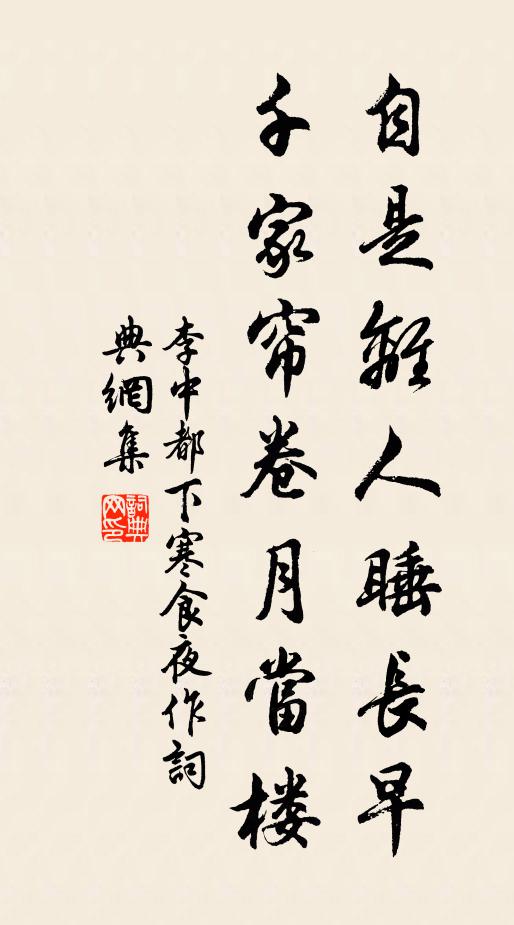 自是離人睡長早
千家帘卷月當楼
李中都下寒食夜作詞
典網集
詞典網印